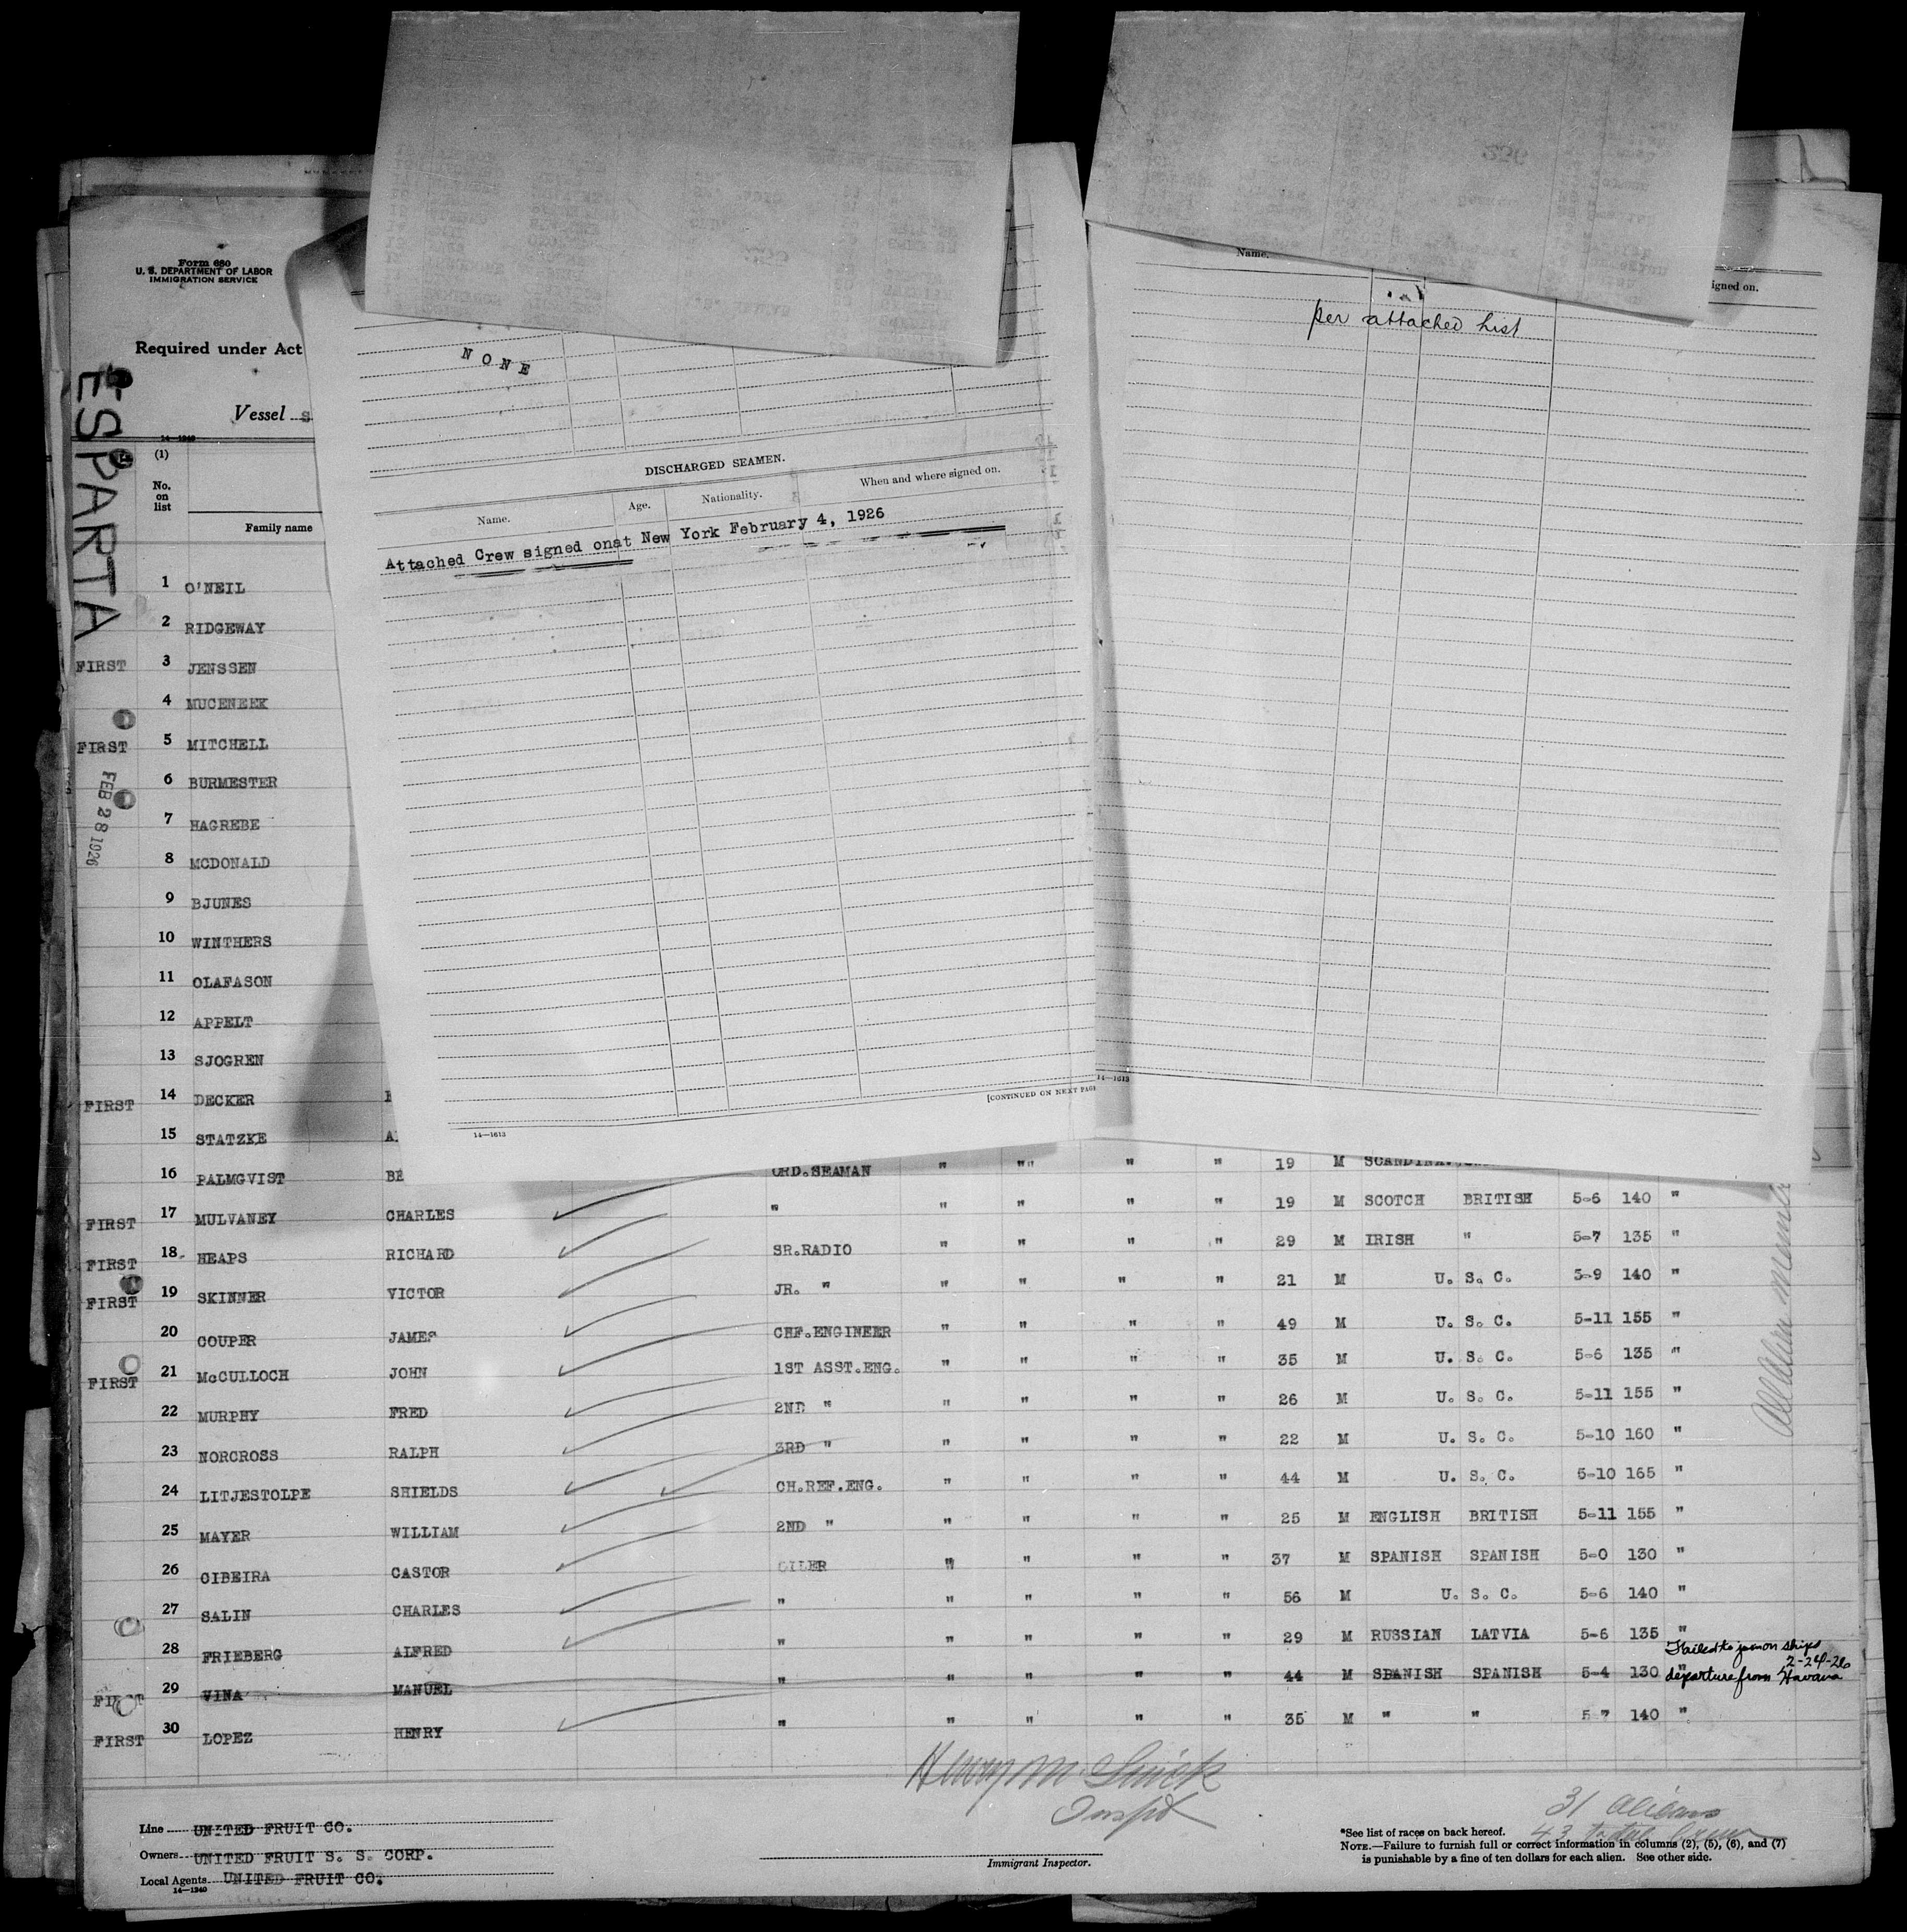 Form 680
U. S. DEPARTMENT OF LABOR
IMMIGRATION SERVICE
Required under Act
Vessel S
ESPARTA
FEB 28 1926
14—1240
(1)
No. on list
Family name
NONE
DISCHARGED SEAMEN.
Name. Age. Nationality. When and where signed on.
Attached Crew signed onat New York February 4, 1926
[CONTINUED ON NEXT PAGE
14—1613
Name. igned on.
per attached list
14—1613
1 O'NEIL
2 RIDGEWAY
FIRST 3 JENSSEN
4 MUCENEEK
FIRST 5 MITCHELL
6 BURMESTER
7 HAGREBE
8 MCDONALD
9 BJUNES
10 WINTHERS
11 OLAFASON
12 APPELT
13 SJOGREN
FIRST 14 DECKER
15 STATZKE A
16 PALMGVIST BE ORD.SEAMAN " " " " 19 M
FIRST 17 MULVANEY CHARLES " " " " " 19 M SCOTCH BRITISH 5-6 140 "
FIRST 18 HEAPS RICHARD SR.RADIO " " " " 29 M IRISH " 5-7 135 "
FIRST 19 SKINNER VICTOR JR. " " " " " 21 M U. S. C. 5-9 140 "
20 COUPER JAMES CHF.ENGINEER " " " " 49 M U. S. C. 5-11 155 "
FIRST 21 McCULLOCH JOHN 1ST ASST.ENG. " " " " 35 M U. S. C. 5-6 135 "
22 MURPHY FRED 2ND " " " " " 26 M U. S. C. 5-11 155 "
23 NORCROSS RALPH 3RD " " " " " 22 M U. S. C. 5-10 160 "
24 LITJESTOLPE SHIELDS CH.REF.ENG. " " " " 44 M U. S. C. 5-10 165 "
25 MAYER WILLIAM 2ND " " " " " 25 M ENGLISH BRITISH 5-11 155 "
26 CIBEIRA CASTOR OILER " " " " 37 M SPANISH SPANISH 5-0 130 "
27 SALIN CHARLES " " " " " 56 M U. S. C. 5-6 140 "
28 FRIEBERG ALFRED " " " " " 29 M RUSSIAN LATVIA 5-6 135 "
FIRST 29 VINA MANUEL " " " " " 44 M SPANISH SPANISH 5-4 130 "
Failed to join on ships
2-24-26
departure from Havana
FIRST 30 LOPEZ HENRY " " " " " 35 M " " 5-7 140 "
Inspr
31 aliens
Line UNITED FRUIT CO.
Owners UNITED FRUIT S. S. CORP.
Local Agents UNITED FRUIT CO.
14—1240
Immigrant Inspector.
*See list of races on back hereof.
NOTE.—Failure to furnish full or correct information in columns (2), (5), (6), and (7)
is punishable by a fine of ten dollars for each alien. See other side.